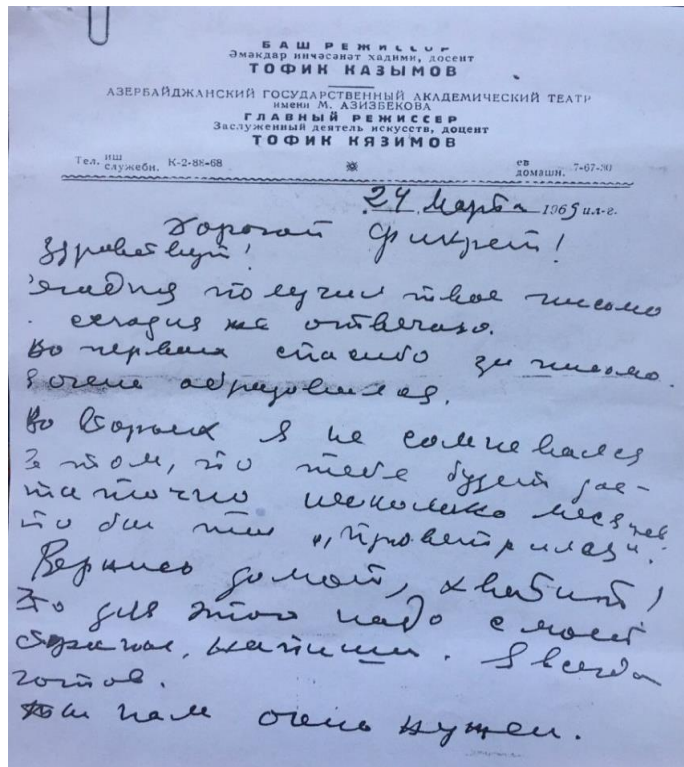 БАШ РЕЖИССОР
Әмәкдар инчәсәнәт хадими, досент
ТОФИК КАЗЫМОВ
АЗЕРБАЙДЖАНСКИЙ ГОСУДАРСТВЕННЫЙ АКАДЕМИЧЕСКИЙ ТЕАТР
имени М. АЗИЗБЕКОВА
ГЛАВНЫЙ РЕЖИССЕР
Заслуженный деятель искусств, доцент
ТОФИК КЯЗИМОВ
Тел. иш служебн. К-2-88-68 ев домашн. 7-67-30
24 Марта 1965 ил-г.
Дорогой Фикрет!
Здравствуй!
Сегодня получил твое письмо
сегодня же отвечаю.
Во первых спасибо за письмо.
Я очень обрадовался.
Во вторых я не сомневался
в том, что тебе будет дос-
таточно несколько месяцев
что бы ты „проветрился".
Вернись домой, хватит!
Что для этого надо с моей
стороны, напиши. Я всегда
готов.
Ты нам очень нужен.